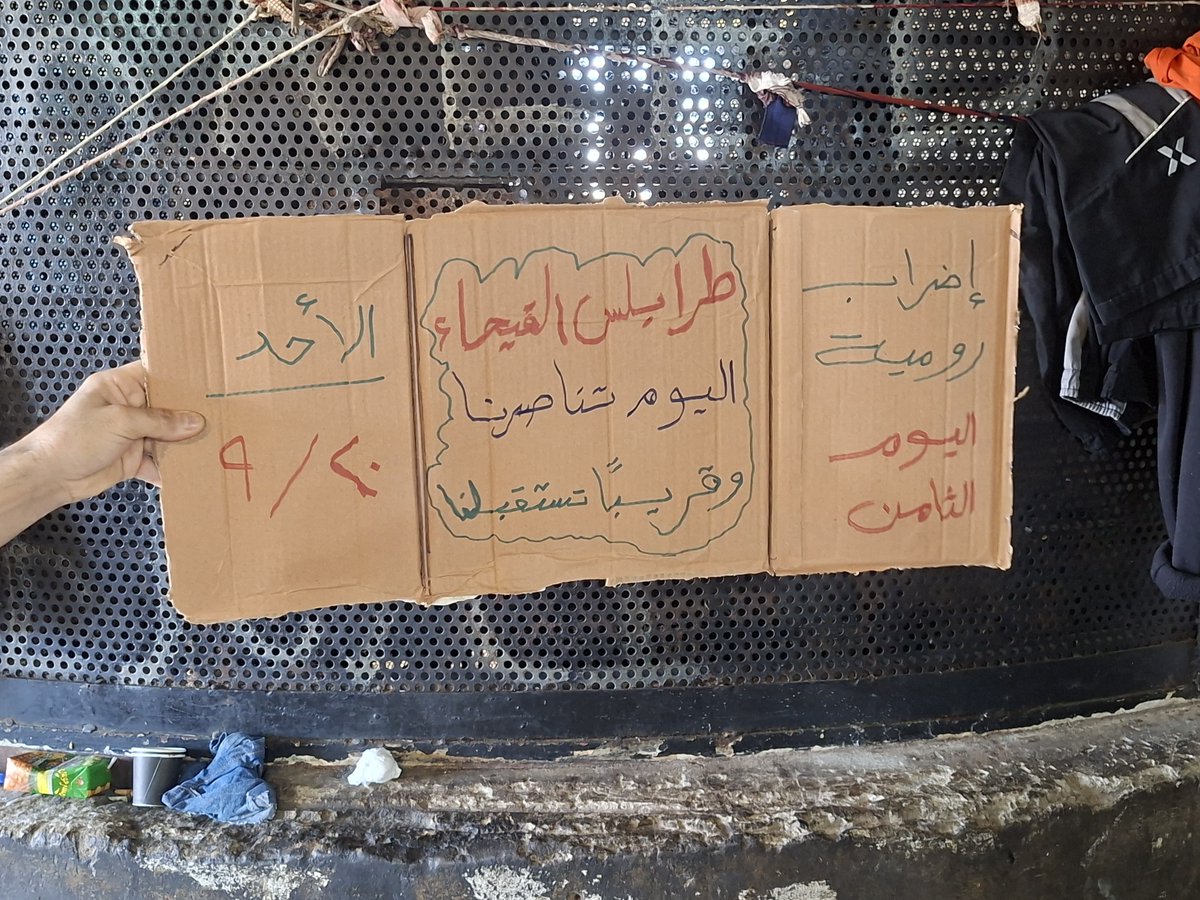 إضراب
رومية
اليوم
الثامن
طرابلس الفيحاء
اليوم تناصرنا
وقريبًا تستقبلنا
الأحد
٢٠/٩